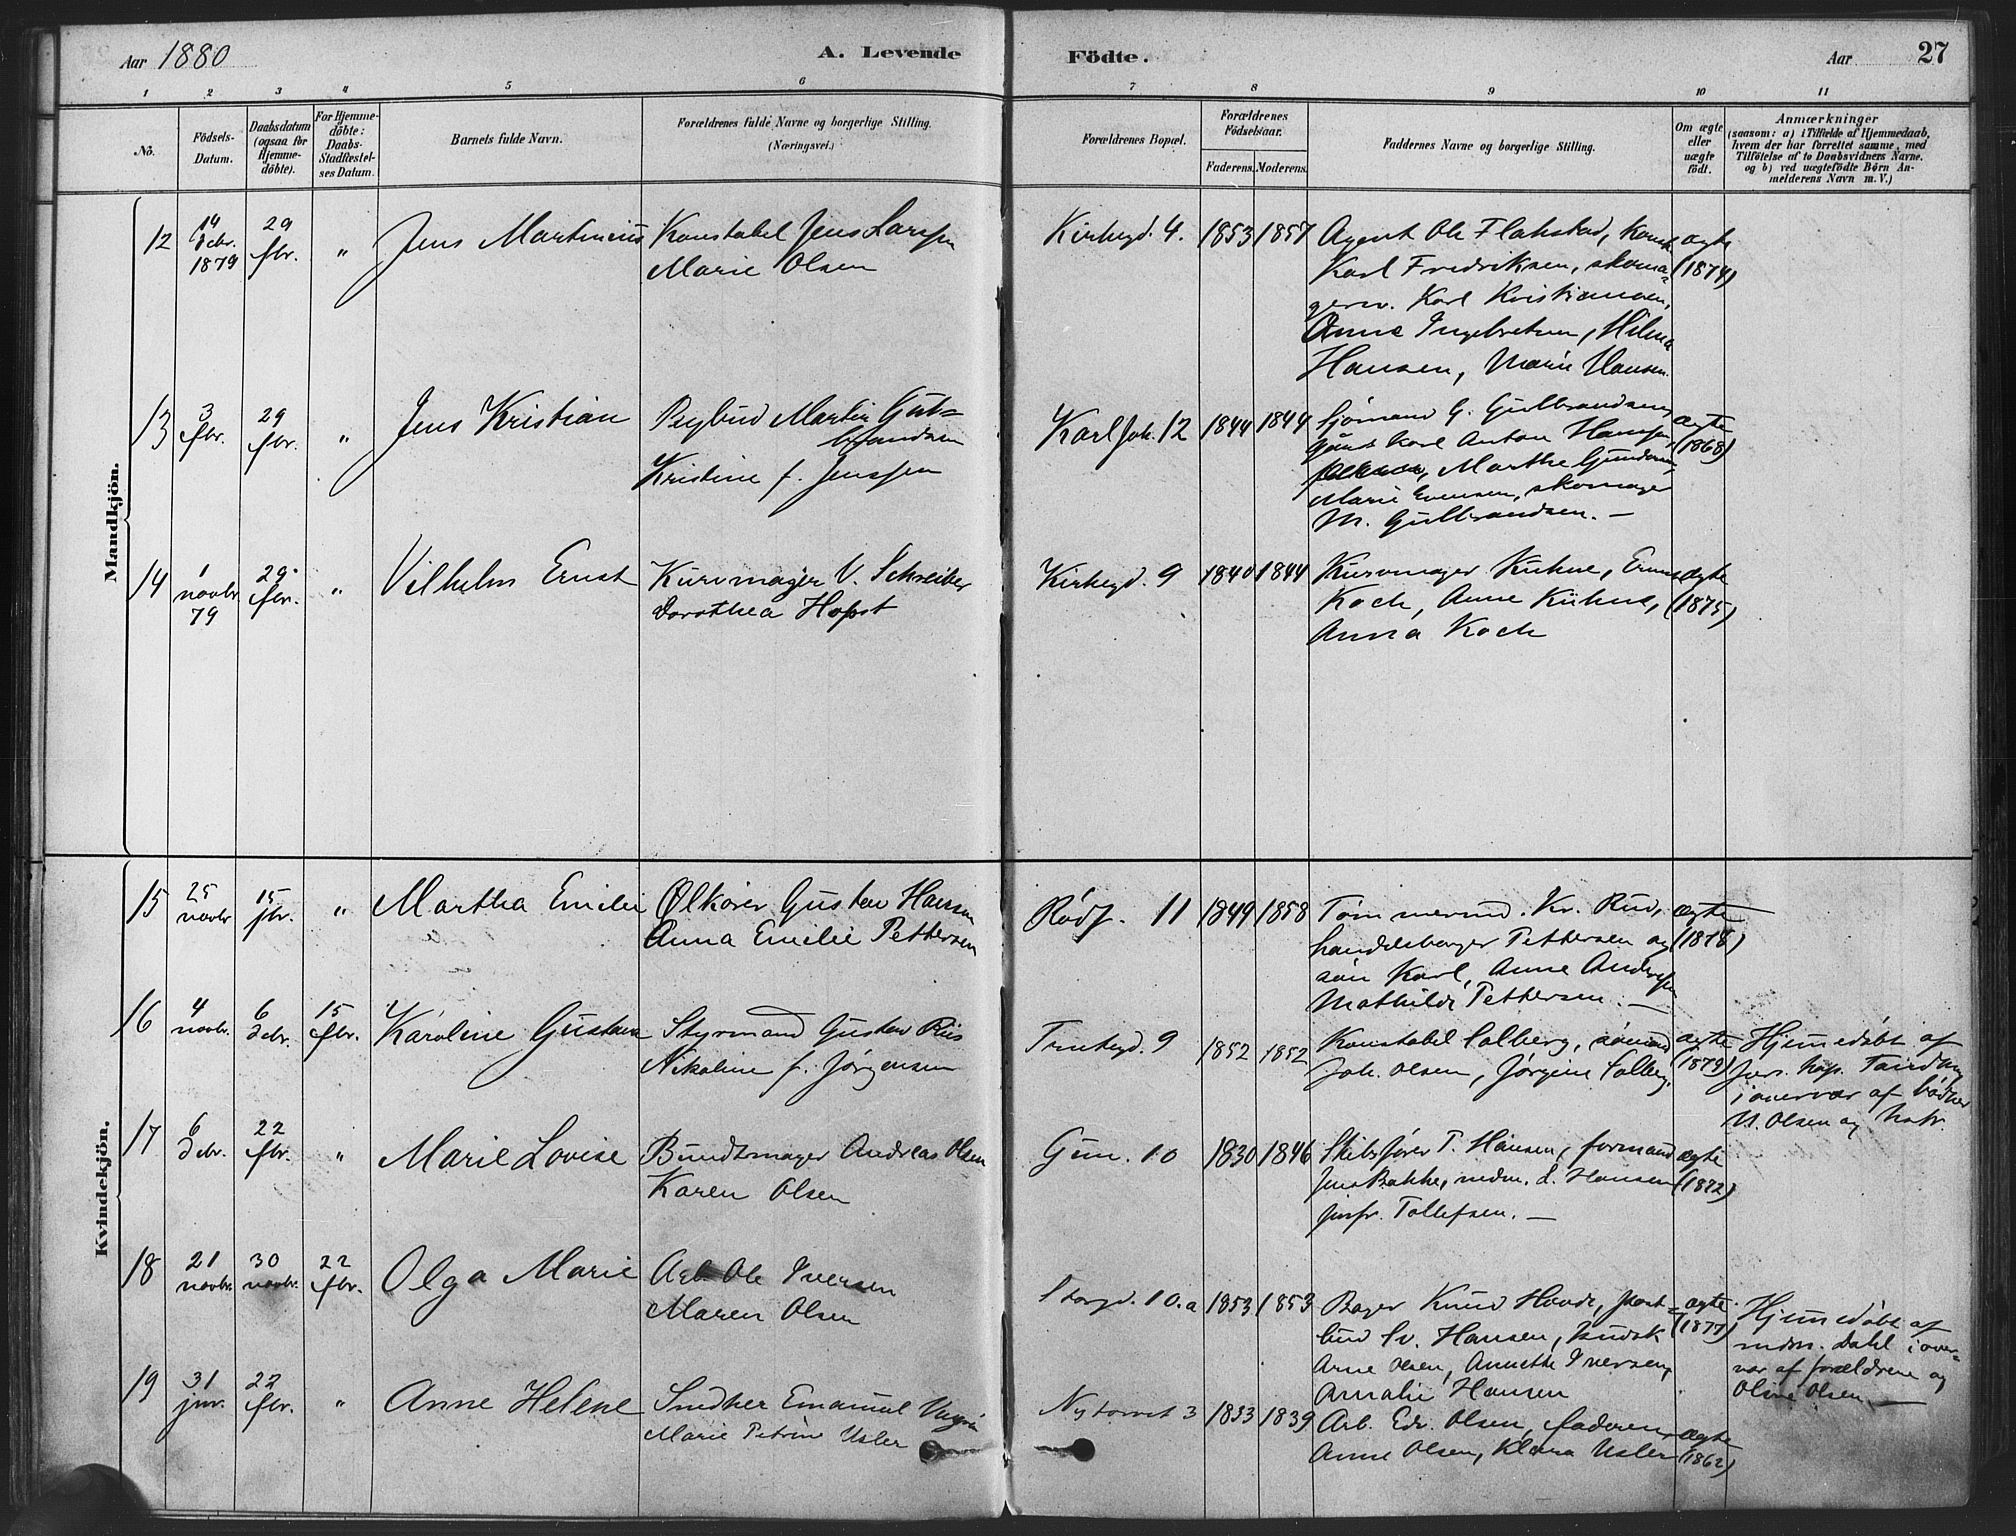 Aar 1880
A. Levende
Födte.
Aar
27
1 2 3 4 5 6 7 8 9 10 11
No.
Födsels-
Datum.
Daabsdatum
(ogsaa for
Hjemme-
døbte).
For Hjemme-
døbte:
Daabs-
Stadfæstel-
ses Datum.
Barnets fulde Navn.
Forældrenes fulde Navne og borgerlige Stilling.
(Næringsvei.)
Forældrenes Bopæl.
Forældrenes
Födselsaar.
Faderens. Moderens.
Faddernes Navne og borgerlige Stilling.
Om ægte
eller
uægte
födt.
Anmærkninger
(saasom: a) i Tilfælde af Hjemmedaab,
hvem der har forrettet samme, med
Tilføielse af to Daabsvidners Navne.
og b) ved uægtefödte Børn An-
melderens Navn m. V.)
Mandkjön.
12
14
debr.
1879
29
fbr.
"
Jens Martinius
Konstabel Jens Larsen
Marie Olsen
Kirkegd. 4.
1853 1857
Agent Ole Flakstad, Konst
Karl Fredriksen, skoma-
gersv. Karl Kristiansen,
Anne Ingebretsen, Hilma
Hansen, Marie Hansen.
ægte
(1874)
13
3
fbr.
29
fbr.
"
Jens Kristian
Bygbud Martin Gul-
brandsen
Kristine f. Jenssen
Karl Joh. 12
1844 1844
Sjømand G. Gulbrandsen,
Karl Anton Hansen,
Marthe Gundersen,
Marie Evensen, skomager
M. Gulbrandsen. —
ægte
(1868)
14
1
novbr
79
29
fbr.
"
Vilhelm Ernst
Kurvmager V. Schreiber
Dorothea Hopst
Kirkegd. 9
1840 1844
Kurvmager Kuhne, Ernst
Koch, Anne Kuhne,
Anna Koch
ægte
(1875)
Kvindekjön.
15
25
novbr
15
fbr.
"
Martha Emilie
Ølkører Gustav Hansen
Anna Emilie Pettersen
Rødf. 11
1849 1858
Tømmermd. Kr. Rud,
handelsborger Pettersen og
søn Karl, Anne Andersen
Mathilde Pettersen. —
ægte
(1878)
16
4
novbr.
6
debr.
15
fbr.
Karoline Gustava
Styrmand Gustav Riis
Nikoline f. Jørgensen
Trntegd. 9
1852 1852
Konstabel Solberg, sømand
Joh. Olsen, Jørgine Solberg.
ægte
(1879)
Hjemmedøbt af
i overvær af bødker
N. Olsen og
17
6
debr.
22
fbr.
"
Marie Lovise
Bundtmager Andreas Olsen
Karen Olsen
Gun. 10
1830 1846
Skibsfører T. Hansen, formand
Jens Bakke, mdm. L. Hansen
jmfr. Tollefsen. —
ægte
(1872)
18
21
novbr.
30
novbr.
22
fbr.
Olga Marie
Arb. Ole Iversen
Maren Olsen
Storgd. 10.a
1853 1853
Bager Knud Hande, post-
bud Sv. Hansen, kudsk
Arne Olsen, Annette Iversen,
Amalie Hansen
ægte
(1877)
Hjemmedøbt af
mdm. Dahl i over-
vær af forældrene og
Oline Olsen. —
19
31
jnr.
22
fbr.
"
Anne Helene
Snedker Emanuel
Marie Petrine Usler
Nytorvet 3
1833 1839
Arb. Edv. Olsen, faderen,
Anne Olsen, Klara Usler
ægte
(1862)